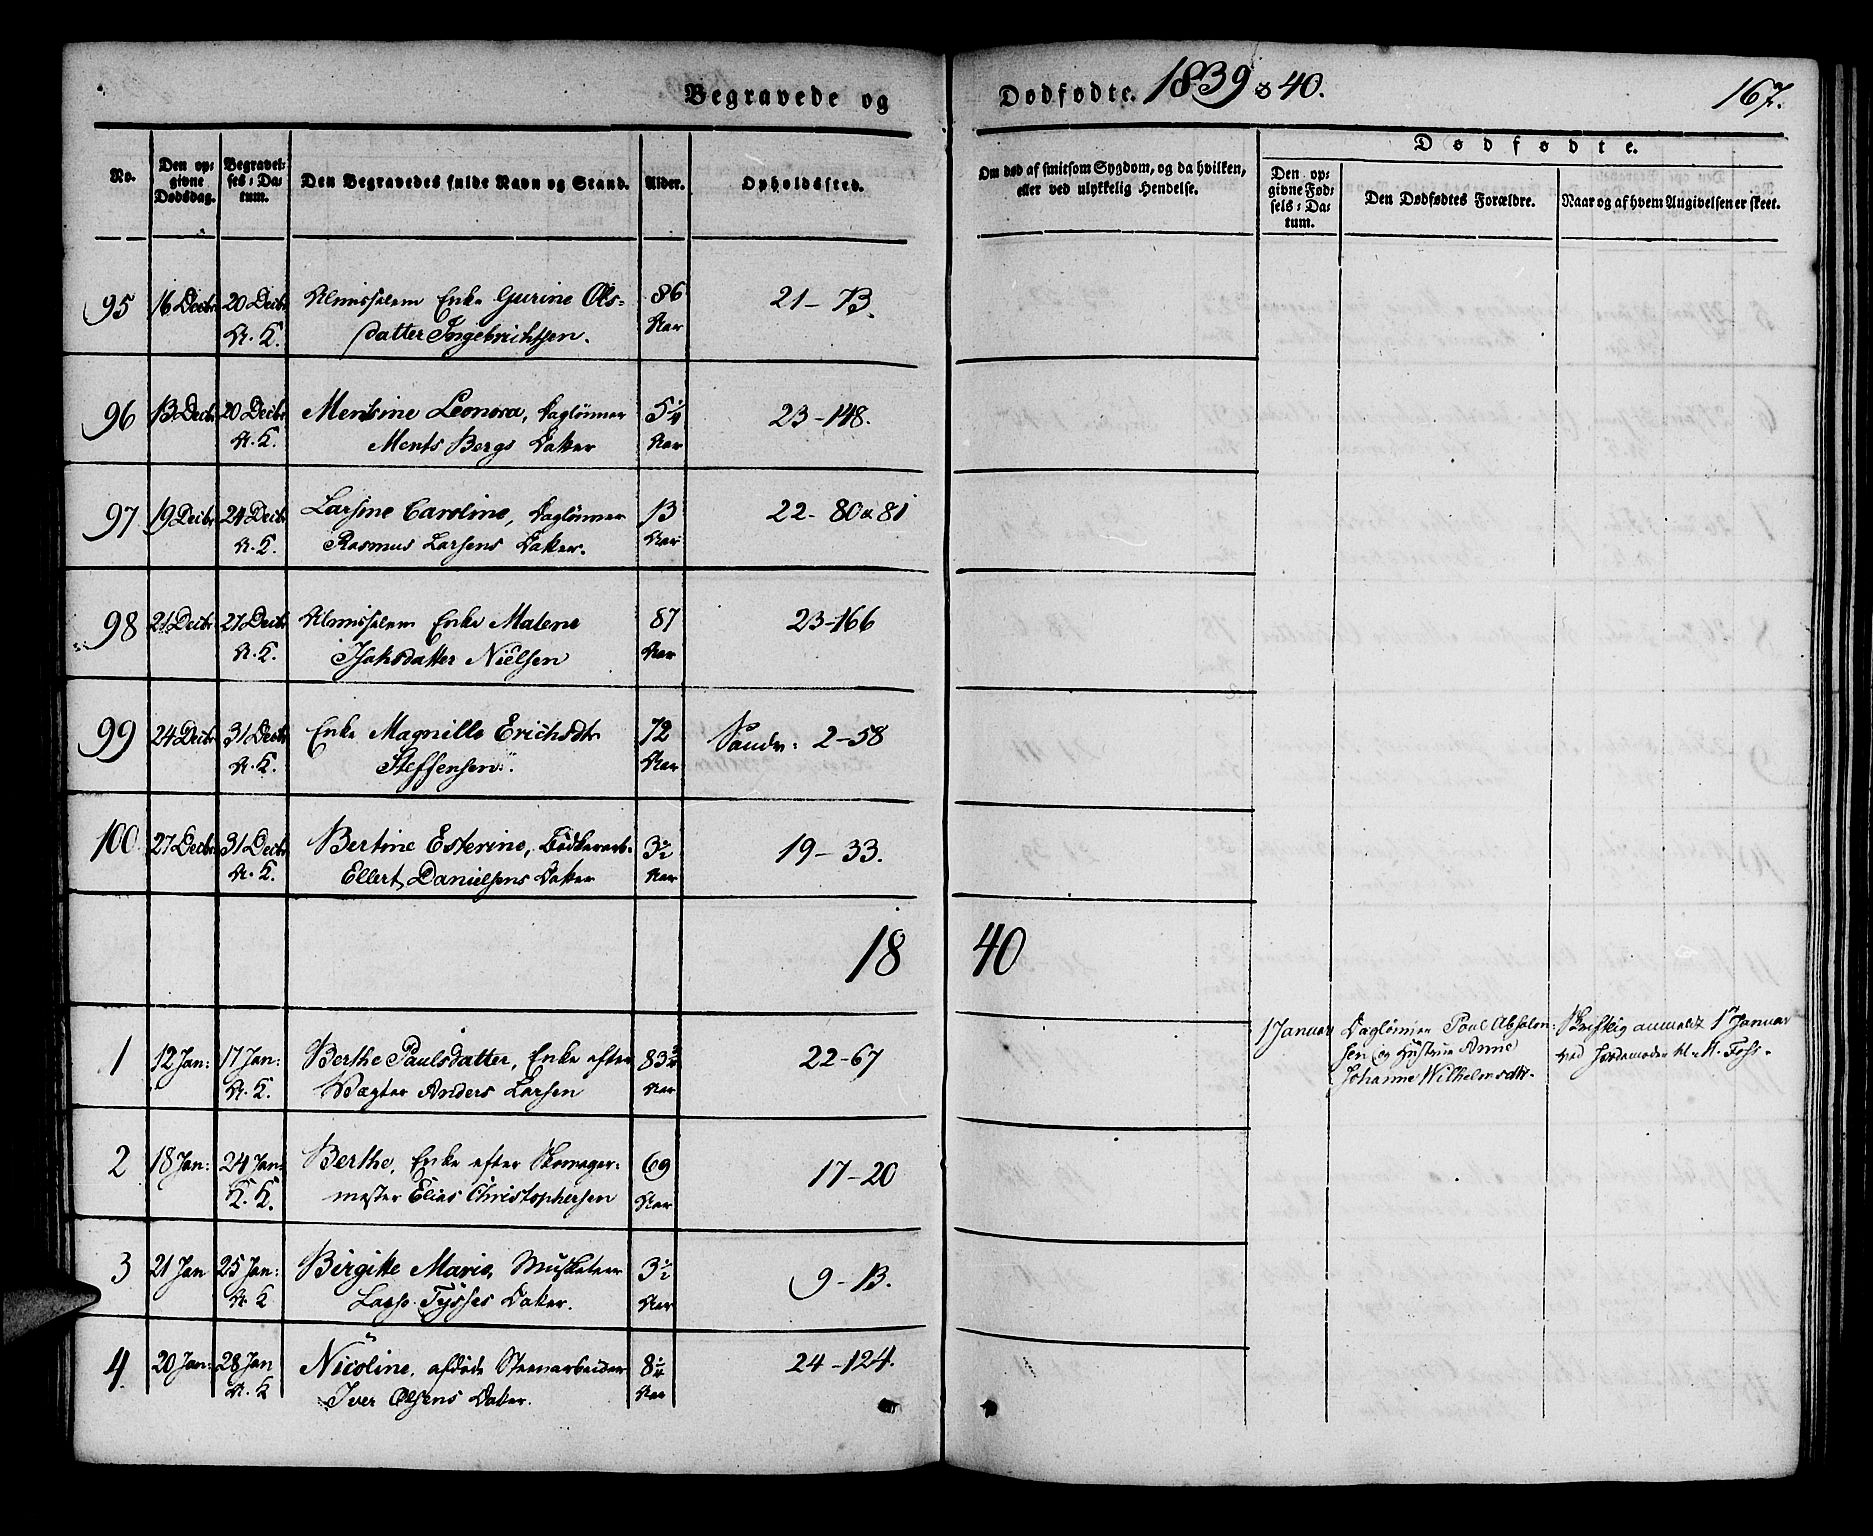 Begravede og Dødfødte. 1839 & 40. 167.
No.
Den op=
givne
Dødsdag.
Begravel=
ses=Da=
tum.
Den Begravedes fulde Navn og Stand.
Alder.
Opholdssted.
Om død af smitsom Sygdom, og da hvilken,
eller ved ulykkelig Hendelse.
Dødfødte.
Den op=
givne Fød=
sels=Da=
tum.
Den Dødfødtes Forældre.
Naar og af hvem Angivelsen er skeet.
95 16 Decbr 20 Decbr Almisselem Enke Gurine Ols= 86 21-13.
A.K. datter Ingebrichtsen. Aar
96 13 Decbr 20 Decbr Mentsine Leonora, Daglönner 5 1/4 23-148.
A.K. Ments Bergs Datter Aar
97 19 Decbr 24 Decbr Larsine Caroline, Daglönner 13 22-80 & 81
A.K. Rasmus Larsens Datter. Aar
98 21 Decbr 27 Decbr Almisselem Enke Malene 87 23-166
A.K. Isaksdatter Nielsen Aar
99 24 Decbr 31 Decbr Enke Magnille Erichsdtr 72 Sandv: 2-58
A.K. Steffensen. Aar
100 27 Decbr 31 Decbr Bertine Esterine, Bödkerarb. 3 1/2 19-33.
A.K. Ellert Danielsens Datter Aar
18 40
1 12 Jan: 17 Jan: Berthe Paulsdatter, Enke efter 83 22-67
A.K. Vægter Anders Larsen Aar
1 Januar Daglönner Poul Absalon=
sen og Hustrue Anne
Johanne Wilhelmsdtr.
Skriftlig anmeldt 1 Januar
ved Jordemoder M. Foss.
2 18 Jan: 24 Jan: Berthe, Enke efter Skomager= 69 17-20
K.K. mester Elias Christophersen Aar
3 21 Jan 25 Jan: Birgitte Marie, Musketeer 3 1/2 9-13.
A.K. Lars Tysses Datter. Aar
4. 20 Jan: 28 Jan Nicoline, afdöde Steenarbeider 8 1/4 24-124.
A.K. Iver Olsens Datter. Aar